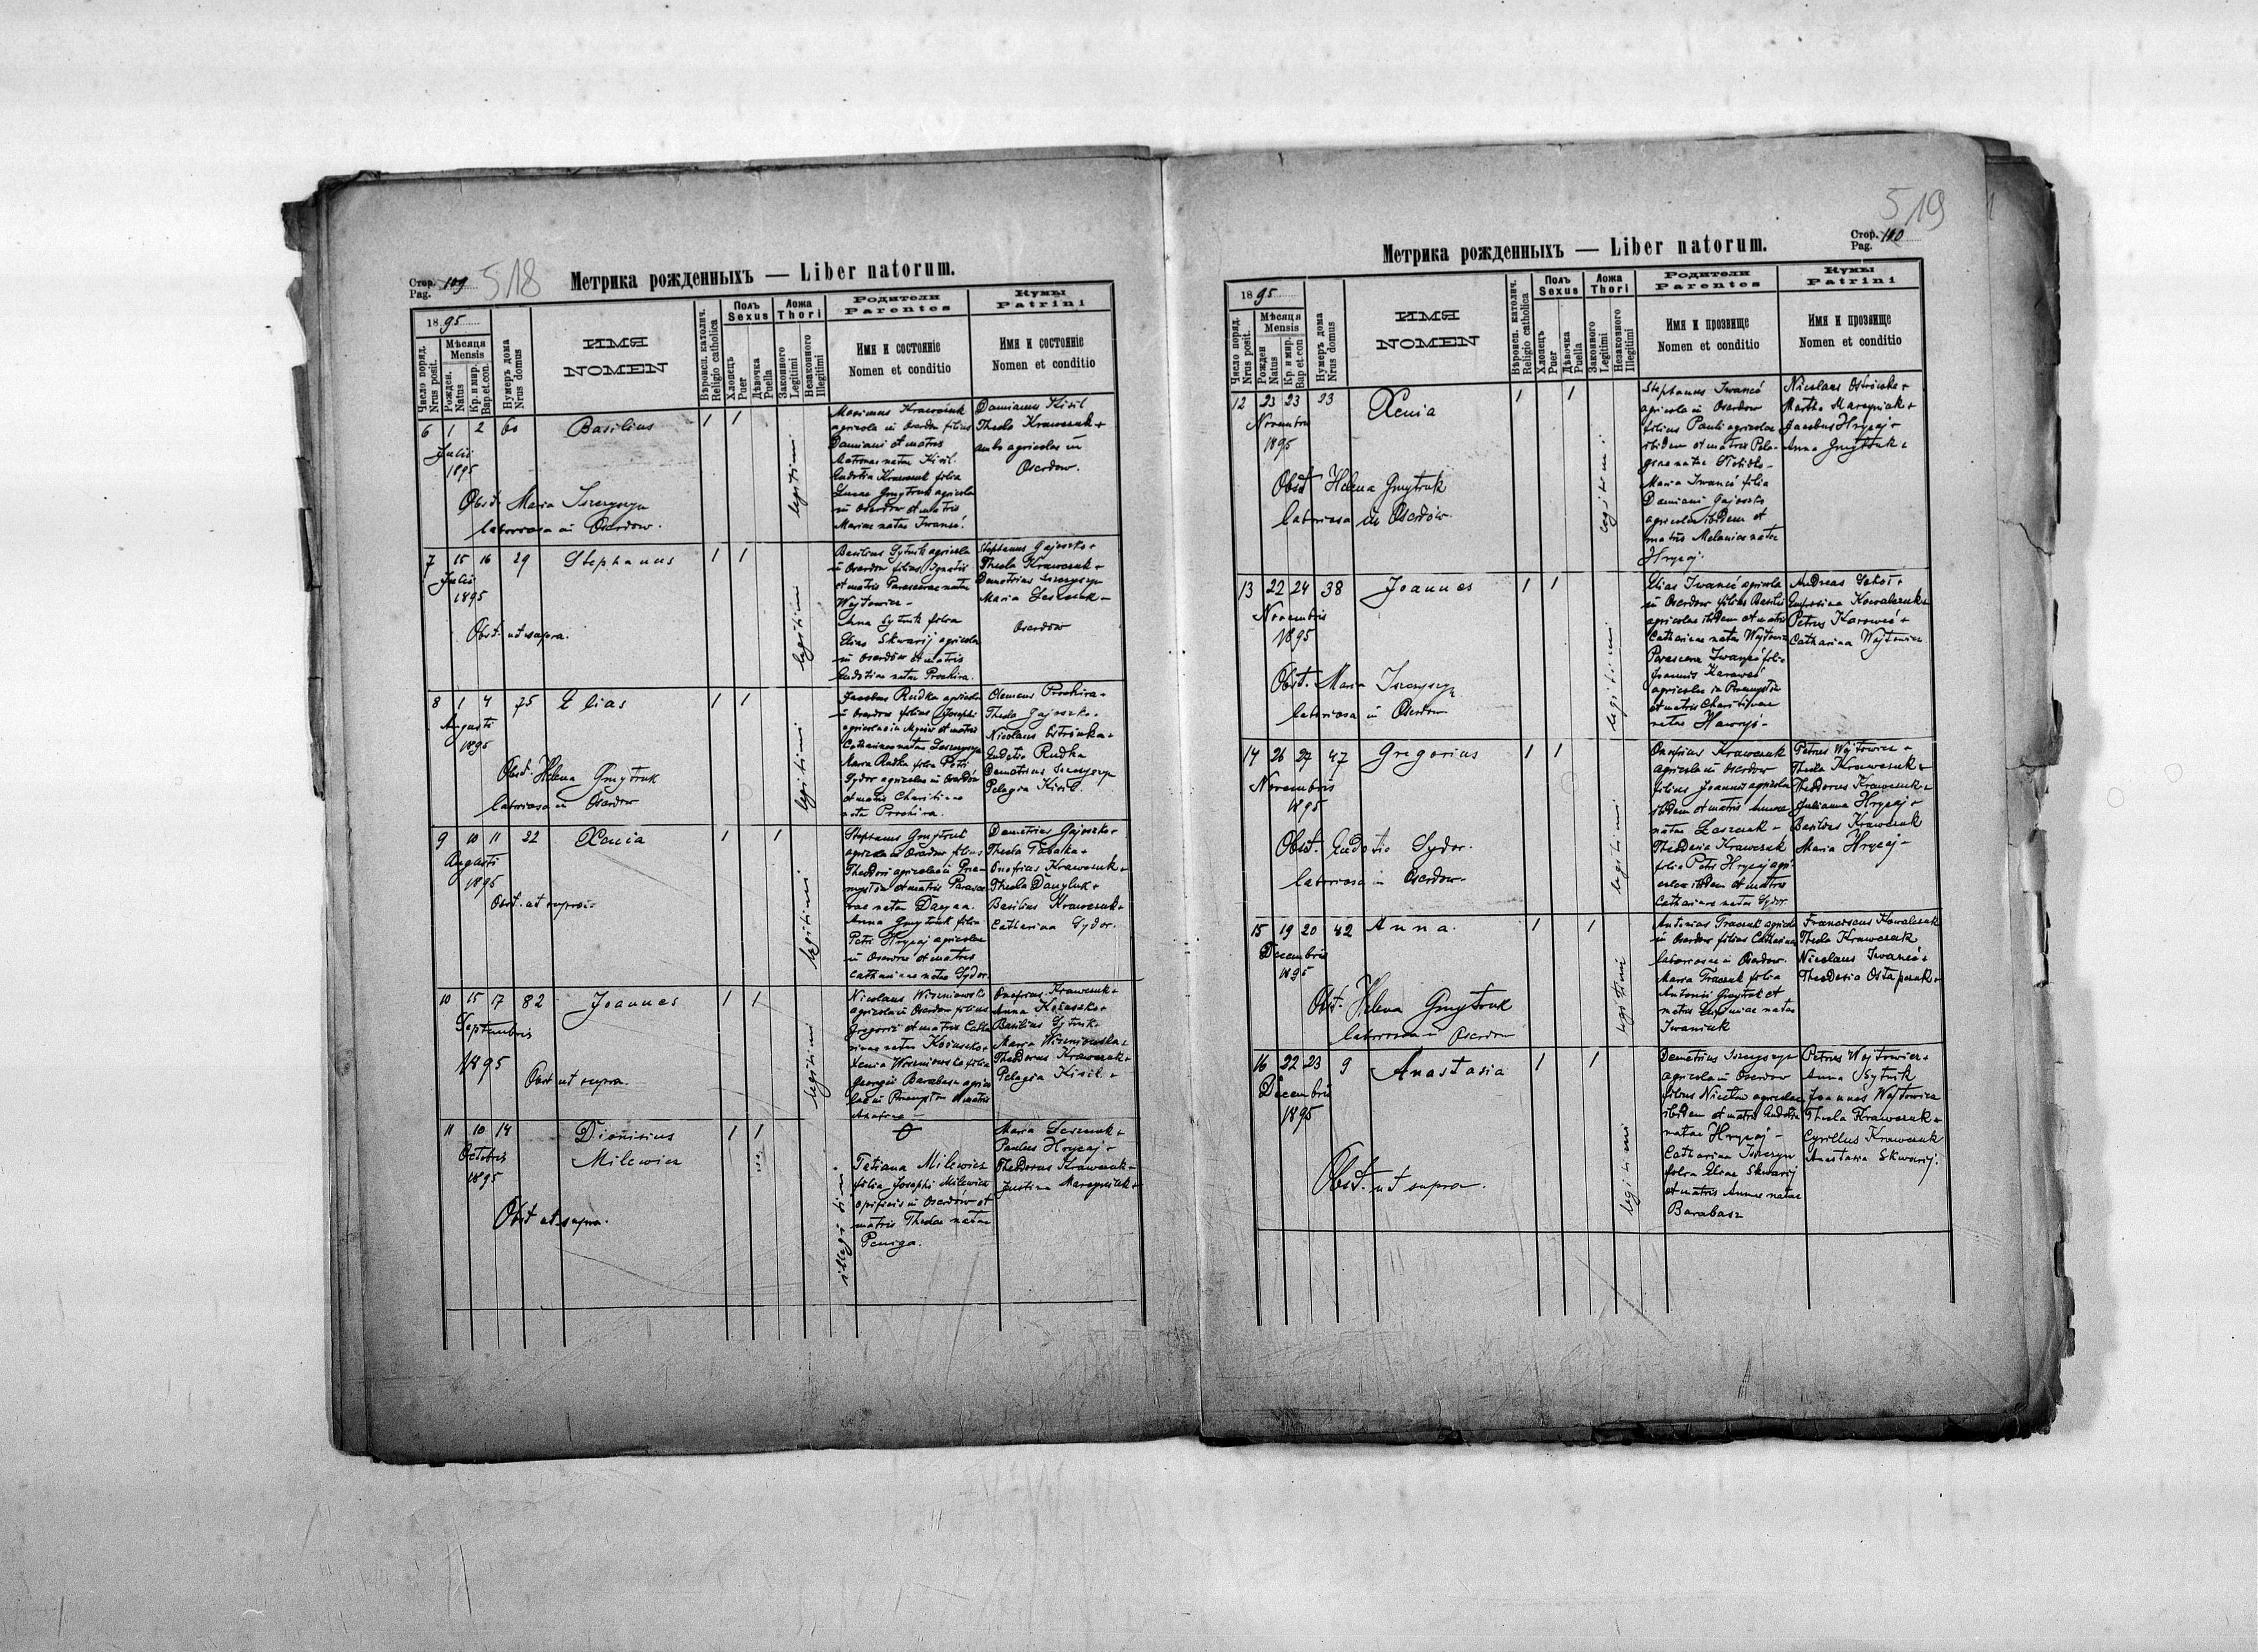 Стор. 109
Pag.
518
Метрика рожденныхъ — Liber natorum.
1895
Число поряд.
Nrus posit.
Мѣсяця
Mensis
Рожден.
Natus
Кр. и мир.
Bap. et. con.
Нумеръ дома
Nrus domus
ИМЯ
NOMEN
Вѣроисп. католич.
Religio catholica
Полъ
Sexus
Хлопецъ
Puer
Дѣвочка
Puella
Ложа
Thori
Законного
Legitimi
Незаконного
Illegitimi
Родители
Parentes
Имя и состоянiе
Nomen et conditio
Кумы
Patrini
Имя и состоянiе
Nomen et conditio
6 1 2 60 Basilius 1 1
Julii
1895
Obst. Maria Iszczyszyn
laboriosa in Oserdow.
legitimi
Maximus Krawczuk
agricola in Oserdow filius
Damiani et matris
Matronae natae Kisil.
Eudotia Krawczuk filia
Lucae Gmytruk agricolae
in Oserdow et matris
Mariae natae Iwaneć.
Damianus Kisil
Thecla Krawczuk +
ambo agricolae in
Oserdow.
7 15 16 29 Stephanus 1 1
Julii
1895
Obst. ut supra.
legitimi
Basilius Sytnik agricola
in Oserdow filius Ignatii
et matris Parascevae natae
Wojtowicz -
Anna Sytnik filia
Eliae Skwarij agricolae
in Oserdów et matris
Eudotiae natae Prockira.
Stephanus Gajoszko +
Thecla Krawczuk +
Demetrius Iszczyszyn
Maria Leszczuk -
Oserdow
8 1 4 75 Elias 1 1
Augusti
1895
Obst. Helena Gmytruk
laboriosa in Oserdow
legitimi
Jacobus Rudka agricola
in Oserdow filius Josephi
agricolae in et matris
Catharinae natae
Maria Rudka filia Petri
Sydor agricolae in Oserdów
et matris Charitinae
nata Prockira.
Clemens Prockira -
Thecla Gajoszko.
Nicolaus Ostrówka +
Eudotia Rudka
Demetrius Iszczyszyn
Pelagia Kisil.
9 10 11 22 Xenia 1 1
Augusti
1895
Obst. ut supra.
legitimi
Stephanus Gmytruk
agricola in Oserdow filius
Theodori agricolae in Prze-
mysłów et matris Parasce-
vae natae
Anna Gmytruk filia
Petri Hrycaj agricolae
in Oserdow et matris
Catharinae natae Sydor.
Demetrius Gajoszko +
Thecla Tabaka +
Onofrius Krawczuk +
Thecla Danyluk +
Basilius Krawczuk +
Catharina Sydor.
10 15 17 82 Joannes 1 1
Septembris
1895
Obst. ut supra.
legitimi
Nicolaus Wiszniowski
agricola in Oserdow filius
Gregorii et matris Catha-
rinae natae Kożuszko +
Xenia Wiszniowska filia
Georgii Barabasz agrico-
lae in Przemysłów et matris
Onofrius Krawczuk +
Anna Kożuszko +
Basilius Sytnik +
Maria Wiszniowska +
Theodorus Krawczuk +
Pelagia Kisil. +
11 10 14 Dionisius 1 1
Octobris Milewicz
1895
Obst. ut supra.
illegitimi.
Tatiana Milewicz
filia Josephi Milewicz
opificis in Oserdów et
matris Theclae natae
Peniga.
Maria Leszczuk +
Paulus Hrycaj +
Theodorus Krawczuk -
Justina Marcyniak +
519
Стор. 110
Pag.
Метрика рожденныхъ — Liber natorum.
1895
Число поряд.
Nrus posit.
Мѣсяця
Mensis
Рожден
Natus
Кр. и мир.
Bap et.con
Нумеръ дома
Nrus domus
ИМЯ
NOMEN
Вѣроисп. католич.
Religio catholica
Полъ
Sexus
Хлопецъ
Puer
Дѣвочка
Puella
Ложа
Thori
Законного
Legitimi
Незаконного
Illegitimi
Родители
Parentes
Имя и прозвище
Nomen et conditio
Кумы
Patrini
Имя и прозвище
Nomen et conditio
12 23 23 23 Xenia 1 1
Novembris
1895
Obst Helena Gmytruk
laboriosa in Oserdów.
legitimi
Stephanus Iwaneć
agricola in Oserdow
filius Pauli agricolae
ibidem et matris Pela-
giae natae
Maria Iwaneć filia
Damiani Gajoszko
agricolae ibidem et
matris Melaniae natae
Hrycaj.
Nicolaus Ostrówka +
Martha Marcyniak +
Jacobus Hrycaj +
Anna Gmytruk +
13 22 24 38 Joannes 1 1
Novembris
1895
Obst. Maria Iszczyszyn
laboriosa in Oserdow
legitimi
Elias Iwaneć agricola
in Oserdow filius Basilii
agricolae ibidem et matris
Catharinae natae Wojtowicz
Parasceva Iwaneć filia
Joannis Karaweć
agricolae in Przemysłów
et matris Charitinae
natae
Andreas Sokoł +
Eufrosina Kowalczuk +
Petrus Karaweć +
Catharina Wojtowicz
14 26 27 47 Gregorius 1 1
Novembris
1895
Obst. Eudotia Sydor.
laboriosa in Oserdow.
legitimi
Onofrius Krawczuk
agricola in Oserdow
filius Joannis agricolae
ibidem et matris Annae
natae Leszczuk -
Theodosia Krawczuk
filia Petri Hrycaj agri-
colae ibidem et matris
Catharinae natae Sydor.
Petrus Wojtowicz +
Thecla Krawczuk +
Theodorus Krawczuk +
Julianna Hrycaj +
Basilius Krawczuk
Maria Hrycaj -
15 19 20 42 Anna. 1 1
Decembris
1895
Obst. Helena Gmytruk
laboriosa in Oserdow
legitimi
Antonius Traczuk agricola
in Oserdow filius Catharinae
laboriosae in Oserdow.
Maria Traczuk filia
Antonii Gmytruk et
matris natae
Iwaniuk
Franciscus Kowalczuk
Thecla Krawczuk
Nicolaus Iwaneć +
Theodosia Ostapczuk +
16 22 23 9 Anastasia 1 1
Decembris
1895
Obst. ut supra.
legitimi
Demetrius Iszczyszyn
agricola in Oserdow
filius Nicetae agricolae
ibidem et matris Eudotiae
natae Hrycaj -
Catharina Iszczyszyn
filia Eliae Skwarij
et matris Annae natae
Barabasz
Petrus Wojtowicz +
Anna Sytnik
Joannes Wojtowicz
Thecla Krawczuk +
Cyrillus Krawczuk
Anastasia Skwarij.